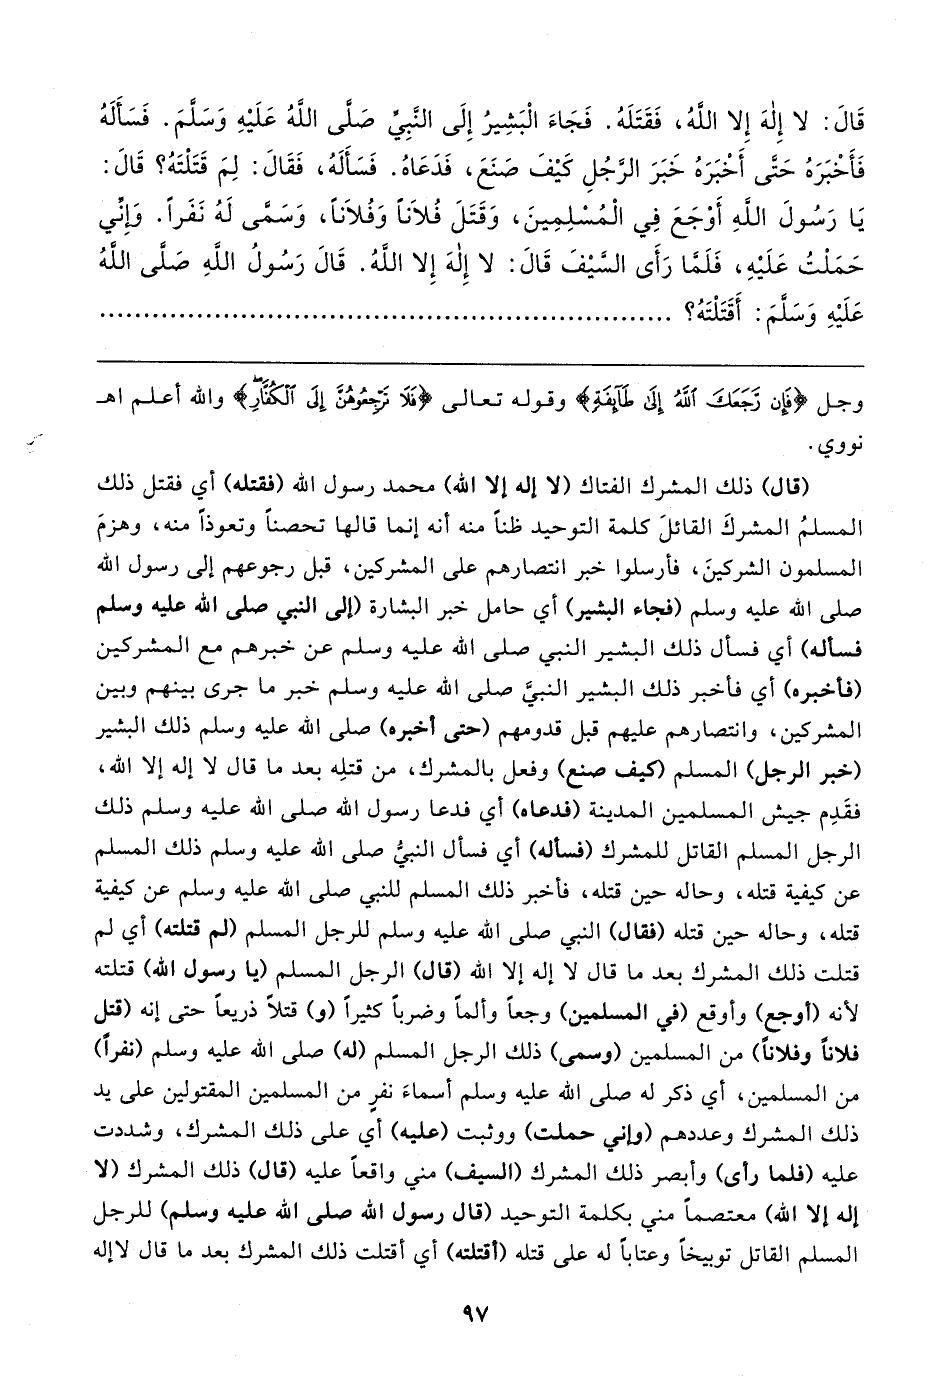 قَالَ: لا إِلٰهَ إِلا اللَّهُ، فَقَتَلَهُ. فَجَاءَ الْبَشِيرُ إِلَى النَّبِيِّ صَلَّى اللَّهُ عَلَيْهِ وَسَلَّمَ. فَسَأَلَهُ
فَأَخْبَرَهُ حَتَّى أَخْبَرَهُ خَبَرَ الرَّجُلِ كَيْفَ صَنَعَ، فَدَعَاهُ. فَسَأَلَهُ، فَقَالَ: لِمَ قَتَلْتَهُ؟ قَالَ:
يَا رَسُولَ اللَّهِ أَوْجَعَ فِي الْمُسْلِمِينَ، وَقَتَلَ فُلاَناً وَفُلاَناً، وَسَمَّى لَهُ نَفَراً. وَإِنِّي
حَمَلْتُ عَلَيْهِ، فَلَمَّا رَأَى السَّيْفَ قَالَ: لا إِلٰهَ إِلا اللَّهُ. قَالَ رَسُولُ اللَّهِ صَلَّى اللَّهُ
عَلَيْهِ وَسَلَّمَ: أَقَتَلْتَهُ؟ ............................................................
وجل ﴿فَإِن رَّجَعَكَ ٱللَّهُ إِلَىٰ طَآئِفَةٍ﴾ وقوله تعالى ﴿فَلَا تَرْجِعُوهُنَّ إِلَى ٱلْكُفَّارِۖ﴾ والله أعلم اهـ
نووي.
(قال) ذلك المشرك الفتاك (لا إله إلا الله) محمد رسول الله (فقتله) أي فقتل ذلك
المسلمُ المشركَ القائلَ كلمة التوحيد ظناً منه أنه إنما قالها تحصناً وتعوذاً منه، وهزمَ
المسلمون الشركينَ، فأرسلوا خبر انتصارهم على المشركين، قبل رجوعهم إلى رسول الله
صلى الله عليه وسلم (فجاء البشير) أي حامل خبر البشارة (إلى النبي صلى الله عليه وسلم
فسأله) أي فسأل ذلك البشير النبي صلى الله عليه وسلم عن خبرهم مع المشركين
(فأخبره) أي فأخبر ذلك البشير النبيَّ صلى الله عليه وسلم خبر ما جرى بينهم وبين
المشركين، وانتصارهم عليهم قبل قدومهم (حتى أخبره) صلى الله عليه وسلم ذلك البشير
(خبر الرجل) المسلم (كيف صنع) وفعل بالمشرك، من قتلِه بعد ما قال لا إله إلا الله،
فقَدِم جيش المسلمين المدينة (فدعاه) أي فدعا رسول الله صلى الله عليه وسلم ذلك
الرجل المسلم القاتل للمشرك (فسأله) أي فسأل النبيُّ صلى الله عليه وسلم ذلك المسلم
عن كيفية قتله، وحاله حين قتله، فأخبر ذلك المسلم للنبي صلى الله عليه وسلم عن كيفية
قتله، وحاله حين قتله (فقال) النبي صلى الله عليه وسلم للرجل المسلم (لم قتلته) أي لم
قتلت ذلك المشرك بعد ما قال لا إله إلا الله (قال) الرجل المسلم (يا رسول الله) قتلته
لأنه (أوجع) وأوقع (في المسلمين) وجعاً وألماً وضرباً كثيراً (و) قتلاً ذريعاً حتى إنه (قتل
فلاناً وفلاناً) من المسلمين (وسمى) ذلك الرجل المسلم (له) صلى الله عليه وسلم (نفراً)
من المسلمين، أي ذكر له صلى الله عليه وسلم أسماءَ نفرٍ من المسلمين المقتولين على يد
ذلك المشرك وعددهم (وإني حملت) ووثبت (عليه) أي على ذلك المشرك، وشددت
عليه (فلما رأى) وأبصر ذلك المشرك (السيف) مني واقعاً عليه (قال) ذلك المشرك (لا
إله إلا الله) معتصماً مني بكلمة التوحيد (قال رسول الله صلى الله عليه وسلم) للرجل
المسلم القاتل توبيخاً وعتاباً له على قتله (أقتلته) أي أقتلت ذلك المشرك بعد ما قال لاإله
٩٧